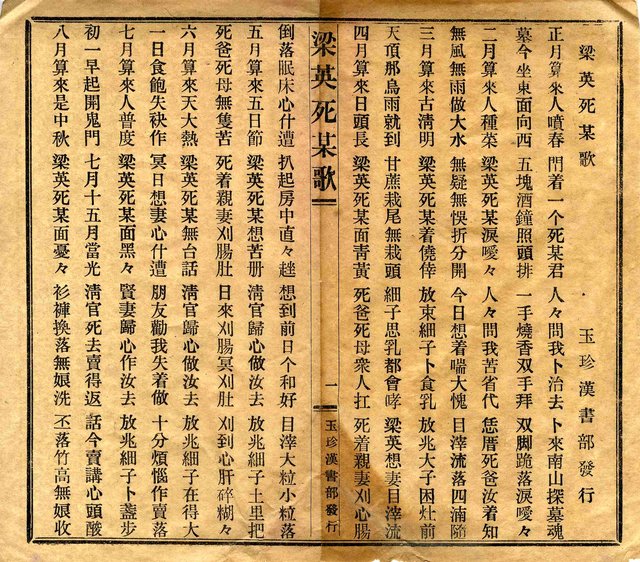 梁英死某歌 玉珍漢書部發行
正月算來人噴春 門着一个死某君 人々問我卜治去 卜來南山探墓魂
墓今坐東面向西 五塊酒鐘照頭排 一手燒香双手拜 双脚跪落淚嗳々
二月算來人種菜 梁英死某淚嗳々 人々問我苦省代 恁厝死爸汝着知
無風無雨做大水 無疑無悞折分開 今日想着喘大愧 目滓流落四湳隨
三月算來古清明 梁英死某着僥倖 放束細子卜食乳 放兆大子困灶前
天頂那烏雨就到 甘蔗栽尾無栽頭 細子思乳都會哮 梁英想妻目滓流
四月算來日頭長 梁英死某面青黃 死爸死母衆人扛 死着親妻刈心腸
梁英死某歌 一 玉珍漢書部發行
倒落眠床心什遭 扒起房中直々趖 想到前日个和好 目滓大粒小粒落
五月算來五日節 梁英死某想苦册 清官歸心做汝去 放兆細子土里把
死爸死母無隻苦 死着親妻刈腸肚 日來刈腸冥刈肚 刈到心肝碎糊々
六月算來天大熱 梁英死某無台話 清官歸心做汝去 放兆細子在得大
一日食飽失袂作 冥日想妻心什遭 朋友勸我失着做 十分煩惱作賣落
七月算來人普度 梁英死某面黑々 賢妻歸心作汝去 放兆細子卜盞步
初一早起開鬼門 七月十五月當光 清官死去賣得返 話今賣講心頭酸
八月算來是中秋 梁英死某面憂々 衫褲換落無娘洗 丕落竹高無娘收